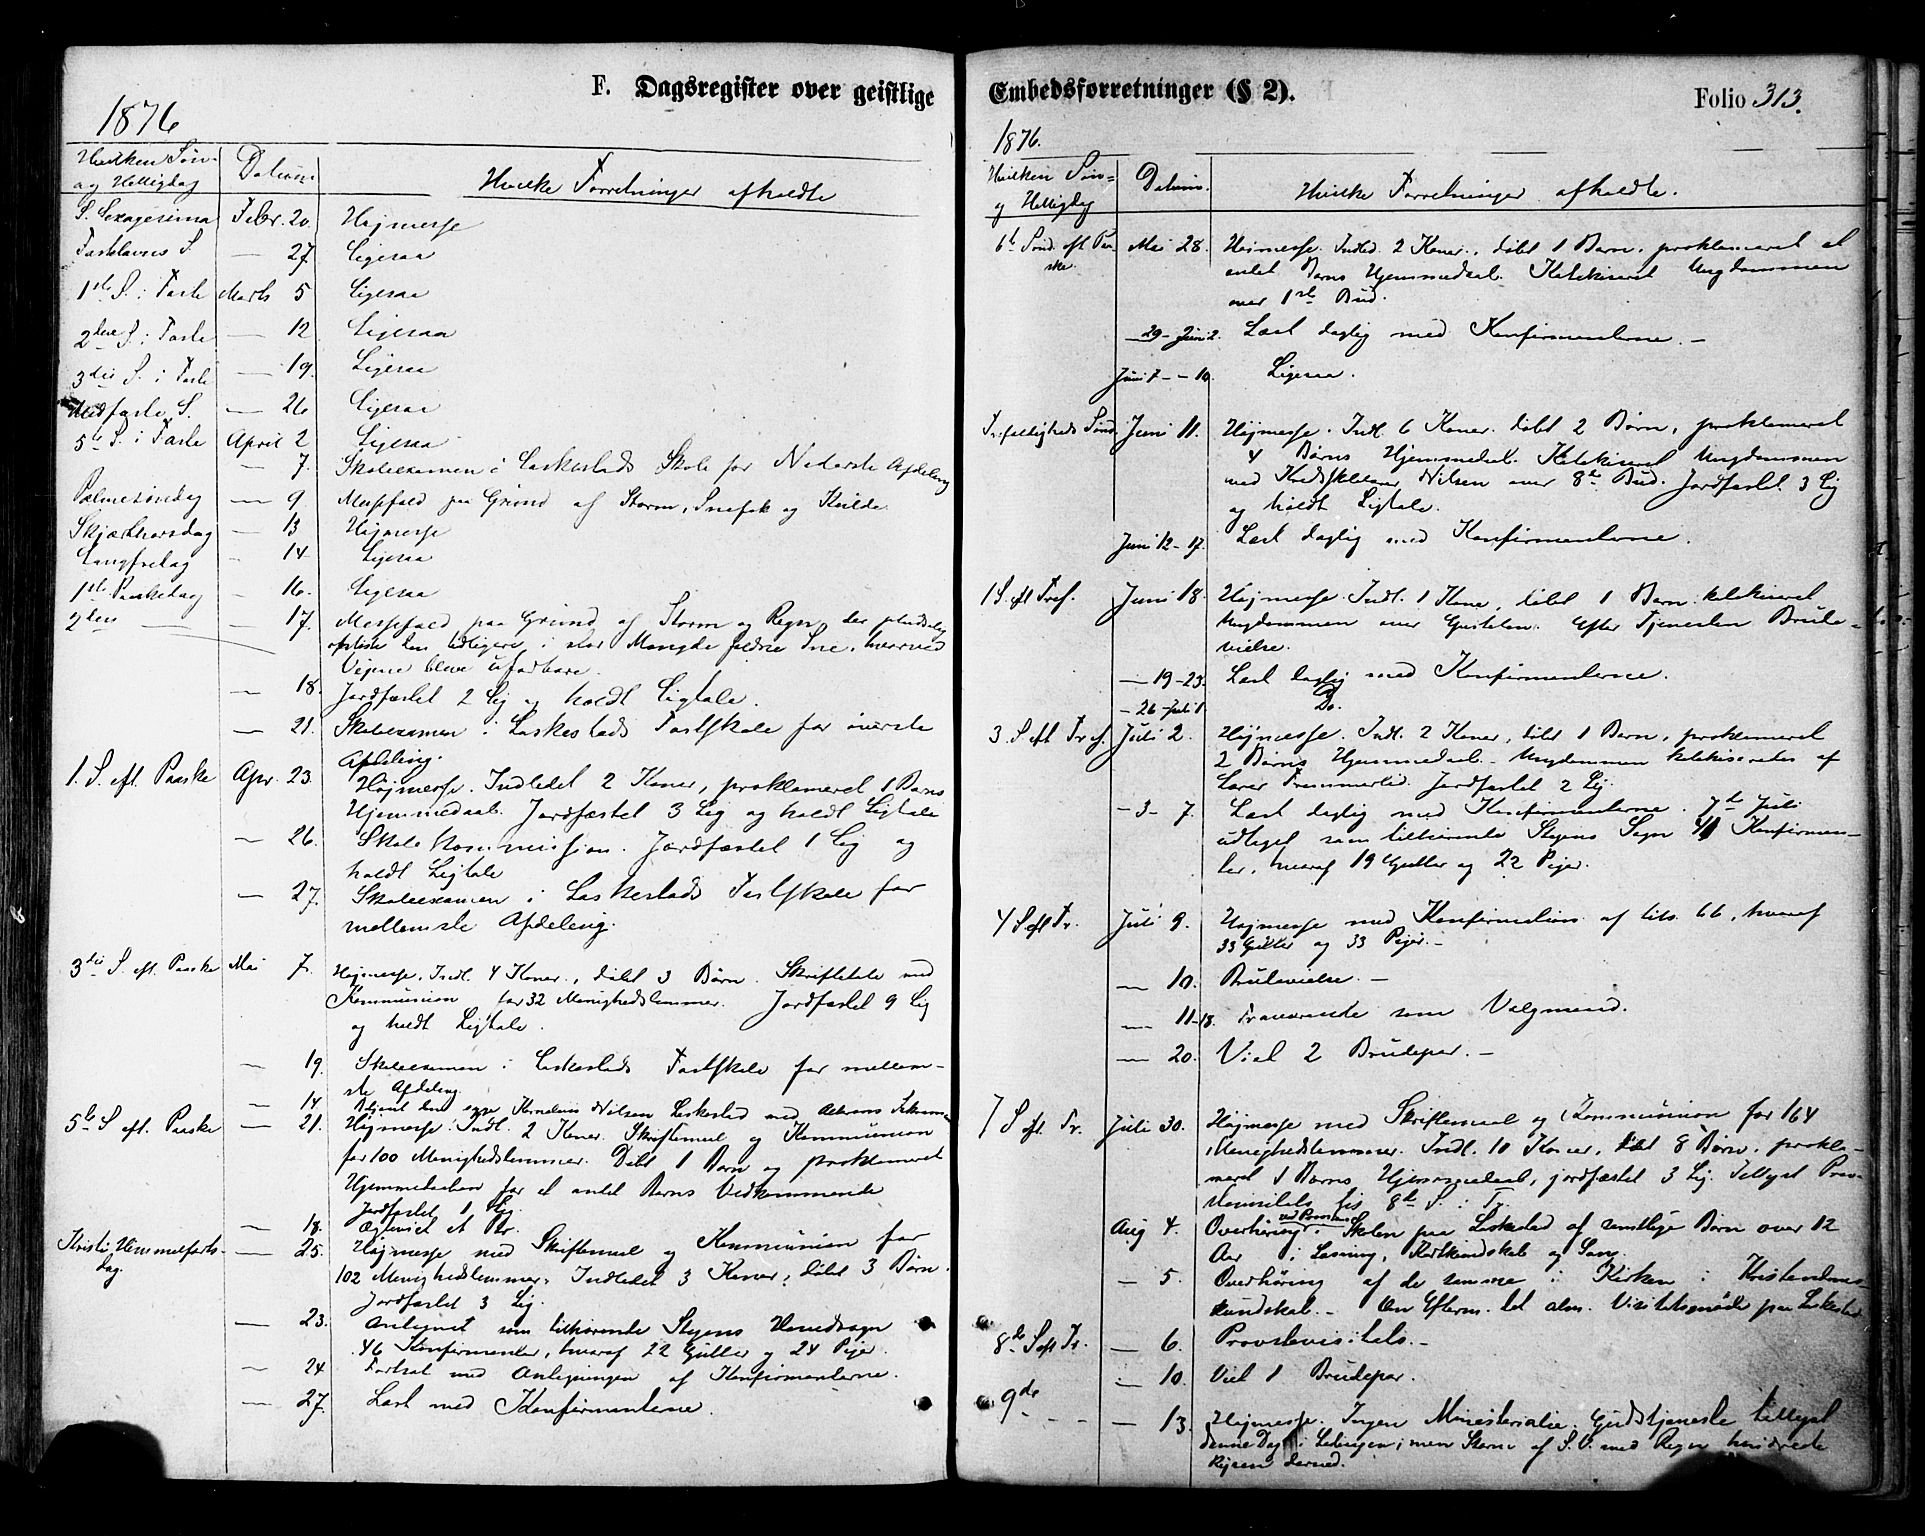 F. Dagsregister over geistlige
1876
Hvilken Søn-
og Helligdag
Datum
Hvilke Forretninger afholdte
S. Sexagesima Febr. 20. Højmesse
Fastelavns S. — 27. Ligesaa
1ste S. i Faste Marts 5 Ligesaa
2den S. i Faste — 12 Ligesaa
3die S. i Faste — 19. Ligesaa
Midfaste S. — 26 Ligesaa
5te S. i Faste April 2 Ligesaa
— 7. Skoleexamen i Laskestads Skole for Nederste Afdeling
Palmesøndag — 9 Messefald paa Grund af Storm, Snefok og Kulde
Skjærthorsdag — 13 Højmesse
Langfredag — 14 Ligesaa
1ste Paaskedag — 16. Ligesaa
2den — — 17. Messefald paa Grund af Storm og Regn, der pludselig
opløste den tidligere i stor Mængde faldne Sne, hvorved
Vejene bleve ufarbare.
— 18. Jordfæstet 2 Lig og holdt Ligtale.
— 21. Skoleexamen i Laskestads Fastskole for øverste
Afdeling.
1. S. eft. Paaske Apr. 23. Højmesse. Indledet 2 Koner, proklameret 1 Barns
Hjemmedaab. Jordfæstet 3 Lig og holdt Ligtale
— 26. Skolekommission. Jordfæstet 1 Lig og
holdt Ligtale
— 27. Skoleexamen i Laskestads Fastskole for
mellemste Afdeling.
3die S. eft. Paaske Mai 7. Højmesse, Indl. 4 Koner, døbt 3 Børn. Skriftetale med
Kommunion for 32 Menighedslemmer. Jordfæstet 9 Lig
og holdt Ligtale.
— 19. Skoleexamen i Laskestads Fastskole for mellem-
ste Afdeling.
— 14 Betjent den syge Kornelius Nilsen Laskestad med Alterens Sakrament
5te S. eft. Paaske — 21. Højmesse. Indl. 2 Koner. Skriftemaal og Kommunion
for 100 Menighedslemmer. Døbt 1 Barn og proklameret
Hjemmedaaben for et andet Barns Vedkommende
Jordfæstet 1 Lig.
— 18. Ægteviet et Par.
Kristi Himmelfarts-
dag. — 25. Højmesse med Skriftemaal og Kommunion for
102 Menighedslemmer, Indledet 3 Koner, døbt 3 Børn.
Jordfæstet 3 Lig.
— 23. Antegnet som tilhørende Stegens Hovedsogn
46 Konfirmanter, hvoraf 22 Gutter og 24 Piger.
— 24 Fortsat med Antegningen af Konfirmanterne.
— 27. Læst med Konfirmanterne.
Embedsforretninger (§ 2).
Folio 313.
1876.
Hvilken Søn-
og Helligdag
Datum.
Hvilke Forretninger afholdte.
6te Sønd. eft. Paa-
ske. Mai 28. Højmesse. Indled. 2 Koner, døbt 1 Barn, proklameret et
andet Barns Hjemmedaab. Katekiseret Ungdommen
over 1ste Bud.
— 29 - Juni 2. Læst daglig med Konfirmanterne. —
Juni 7 - - 10. Ligesaa.
Trefoldigheds Sønd. Juni 11. Højmesse. Indl. 6 Koner. døbt 2 Børn, proklameret
4 Børns Hjemmedaab. Katekiseret Ungdommen
ved Kredsskolelærer Nilsen over 8de Bud. Jordfæstet 3 Lig
og holdt Ligtale.
Juni 12 - 17. Læst daglig med Konfirmanterne.
1 S. eft Tref. Juni 18. Højmesse. Indl. 1 Kone, døbt 1 Barn. katekiseret
Ungdommen over Epistelen. Efter Tjenesten Brude-
vielse.
— 19 - 23. Læst daglig med Konfirmanterne.
— 26 - Juli 1 Do.
3. S. eft Tref. Juli 2. Højmesse. Indl. 2 Koner, døbt 1 Barn, proklameret
2 Børns Hjemmedaab. — Ungdommen katekiseredes af
Lærer Trommerlid. Jordfæstet 2 Lig.
— 3 - 7. Læst daglig med Konfirmanterne. 7de Juli
udtaget som tilhørende Stegens Sogn 41 Konfirman-
ter, hvoraf 19 Gutter og 22 Piger.
4 S. eft Tr. Juli 9. Højmesse med Konfirmation af tils. 66, hvoraf
33 Gutter og 33 Piger. —
— 10. Brudevielse. —
— 11 - 18. Fraværende som Valgmand.
— 20. Viet 2 Brudepar. —
7 S. eft. Tr. Juli 30. Højmesse med Skriftemaal og Kommunion for 164
Menighedslemmer. Indl. 10 Koner, døbt 8 Børn, prokla-
meret 1 Barns Hjemmedaab, jordfæstet 3 Lig. Tillyst Prov-
stevisitats her 8de S. e. Tr.
Aug 4. Overhøring ved Provsten i Skolen paa Laskestad af samtlige Børn over 12
Aar i Læsning, Katkundskab og Sang.
— 5. Overhøring af de samme i Kirken i Kristendoms-
kundskab. — Om Efterm. et alm. Visitatsmøde paa Laskestad
8de S eft Tr. — 6. Provstevisitats. —
— 10. Viet 1 Brudepar.
9de - - - — 13. Højmesse. Ingen Ministerialier. Gudstjeneste tillyst
denne Dag i Ledingen, men Storm af S.V. med Regn hindrede
Rejsen derned.